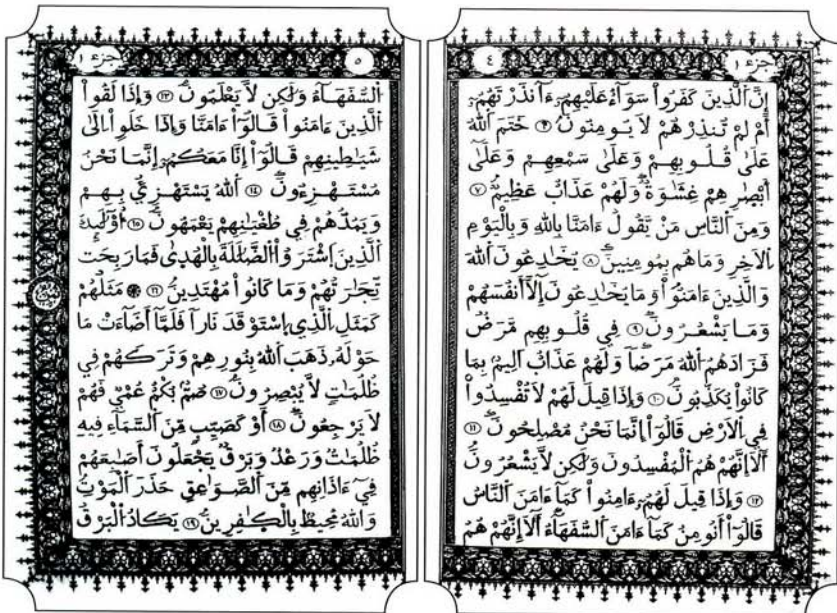 جزء ١
٤
إِنَّ اَ۬لذِينَ كَفَرُواْ سَوَآءٌ عَلَيْهِمُۥٓ ءَآنذَرْتَهُمُۥٓ
أَمْ لَمْ تُنذِرْهُمْ لَا يُومِنُونَ ٦ خَتَمَ اَ۬للَّهُ
عَلَىٰ قُلُوبِهِمْ وَعَلَىٰ سَمْعِهِمْ وَعَلَىٰٓ
أَبْصَٰرِهِمْ غِشَٰوَةٌ وَلَهُمْ عَذَابٌ عَظِيمٌ ٧
وَمِنَ اَ۬لنَّاسِ مَنْ يَّقُولُ ءَامَنَّا بِاللَّهِ وَبِالْيَوْمِ
اِ۬لَاخِرِ وَمَا هُم بِمُومِنِينَ ٨ يُخَٰدِعُونَ اَ۬للَّهَ
وَالَّذِينَ ءَامَنُواْ وَمَا يُخَٰدِعُونَ إِلَّآ أَنفُسَهُمْ
وَمَا يَشْعُرُونَ ٩ فِي قُلُوبِهِم مَّرَضٌ
فَزَادَهُمُ اُ۬للَّهُ مَرَضاً وَلَهُمْ عَذَابٌ اَلِيمٌ بِمَا
كَانُواْ يُكَذِّبُونَ ١٠ وَإِذَا قِيلَ لَهُمْ لَا تُفْسِدُواْ
فِي اِ۬لَارْضِ قَالُوٓاْ إِنَّمَا نَحْنُ مُصْلِحُونَ ١١
أَلَآ إِنَّهُمْ هُمُ اُ۬لْمُفْسِدُونَ وَلَٰكِن لَّا يَشْعُرُونَ
١٢ وَإِذَا قِيلَ لَهُمُۥٓ ءَامِنُواْ كَمَآ ءَامَنَ اَ۬لنَّاسُ
قَالُوٓاْ أَنُومِنُ كَمَآ ءَامَنَ اَ۬لسُّفَهَآءُ أَلَآ إِنَّهُمْ هُمُ
جزء ١
٥
اُ۬لسُّفَهَآءُ وَلَٰكِن لَّا يَعْلَمُونَ ١٣ وَإِذَا لَقُواْ
اُ۬لذِينَ ءَامَنُواْ قَالُوٓاْ ءَامَنَّا وَإِذَا خَلَوِاْ اِلَىٰ
شَيَٰطِينِهِمْ قَالُوٓاْ إِنَّا مَعَكُمُۥٓ إِنَّمَا نَحْنُ
مُسْتَهْزِءُونَ ١٤ اَ۬للَّهُ يَسْتَهْزِئُ بِهِمْ
وَيَمُدُّهُمْ فِي طُغْيَٰنِهِمْ يَعْمَهُونَ ١٥ أُوْلَٰٓئِكَ
اَ۬لذِينَ اَ۪شْتَرَوُاْ اُ۬لضَّلَٰلَةَ بِالْهُدَىٰ فَمَا رَبِحَت
تِّجَٰرَتُهُمْ وَمَا كَانُواْ مُهْتَدِينَ ١٦ مَثَلُهُمْ
كَمَثَلِ اِ۬لذِي اِ۪سْتَوْقَدَ نَاراً فَلَمَّآ أَضَآءَتْ مَا
حَوْلَهُۥ ذَهَبَ اَ۬للَّهُ بِنُورِهِمْ وَتَرَكَهُمْ فِي
ظُلُمَٰتٍ لَّا يُبْصِرُونَ ١٧ صُمٌّ بُكْمٌ عُمْيٌ فَهُمْ
لَا يَرْجِعُونَ ١٨ أَوْ كَصَيِّبٍ مِّنَ اَ۬لسَّمَآءِ فِيهِ
ظُلُمَٰتٌ وَرَعْدٌ وَبَرْقٌ يَجْعَلُونَ أَصَٰبِعَهُمْ
فِيٓ ءَاذَانِهِم مِّنَ اَ۬لصَّوَٰعِقِ حَذَرَ اَ۬لْمَوْتِ
وَاللَّهُ مُحِيطٌ بِالْكٰ۪فِرِينَ ١٩ يَكَادُ اُ۬لْبَرْقُ